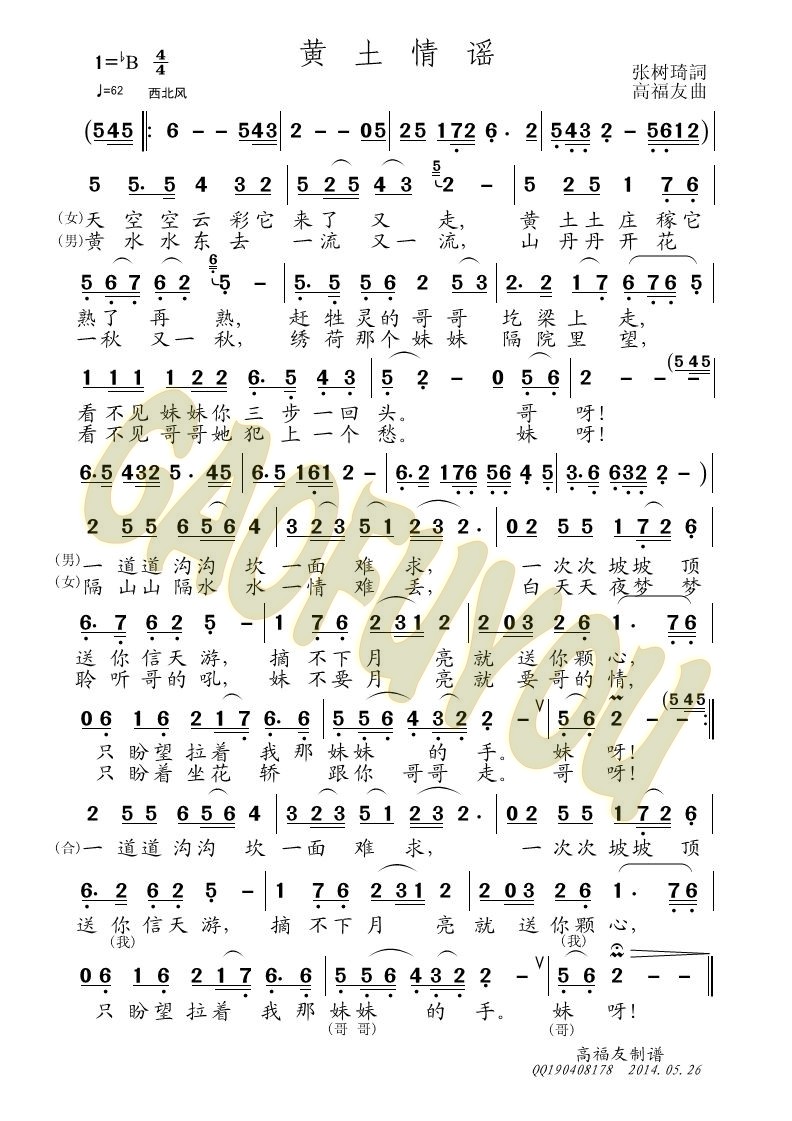 黄土情谣
1=♭B 4/4
♩=62 西北风
张树琦詞
高福友曲
(545 ‖: 6 - - 543 | 2 - - 05 | 25 172 6· 2 | 543 2 - 5612)
5 5· 5 4 3 2 | 5 2 5 4 3 5 2 - | 5 2 5 1 7 6
(女)天空空云彩它来了又走,黄土土庄稼它
(男)黄水水东去一流又一流,山丹丹开花
5 6 7 6 2 6 5 - | 5· 5 5 6 2 5 3 | 2· 2 1 7 6 7 6 5
熟了再熟,赶牲灵的哥哥圪梁上走,
一秋又一秋,绣荷那个妹妹隔院里望,
1 1 1 1 2 2 6· 5 4 3 | 5 2 - 0 5 6 | 2 - - (5 4 5
看不见妹妹你三步一回头。哥呀!
看不见哥哥她犯上一个愁。妹呀!
6·5 432 5· 45 | 6·5 161 2 - | 6·2 176 56 4 5 | 3·6 632 2 -)
2 5 5 6 5 6 4 | 3 2 3 5 1 2 3 2· | 0 2 5 5 1 7 2 6
(男)一道道沟沟坎一面难求,一次次坡坡顶
(女)隔山山隔水水一情难丢,白天天夜梦梦
6· 7 6 2 5 - | 1 7 6 2 3 1 2 | 2 0 3 2 6 1· 7 6
送你信天游,摘不下月亮就送你颗心,
聆听哥的吼,妹不要月亮就要哥的情,
0 6 1 6 2 1 7 6· 6 | 5 5 6 4 3 2 2 - ∨ | 5 6 2 - (5 4 5 :‖
只盼望拉着我那妹妹的手。妹呀!
只盼着坐花轿跟你哥哥走。哥呀!
2 5 5 6 5 6 4 | 3 2 3 5 1 2 3 2· | 0 2 5 5 1 7 2 6
(合)一道道沟沟坎一面难求,一次次坡坡顶
6· 2 6 2 5 - | 1 7 6 2 3 1 2 | 2 0 3 2 6 1· 7 6
送你信天游,摘不下月亮就送你颗心,
(我) (我)
0 6 1 6 2 1 7 6· 6 | 5 5 6 4 3 2 2 - ∨ | 5 6 2 - - ‖
只盼望拉着我那妹妹的手。妹呀!
(哥哥) (哥)
高福友制谱
QQ190408178 2014.05.26
GAOFUYOU